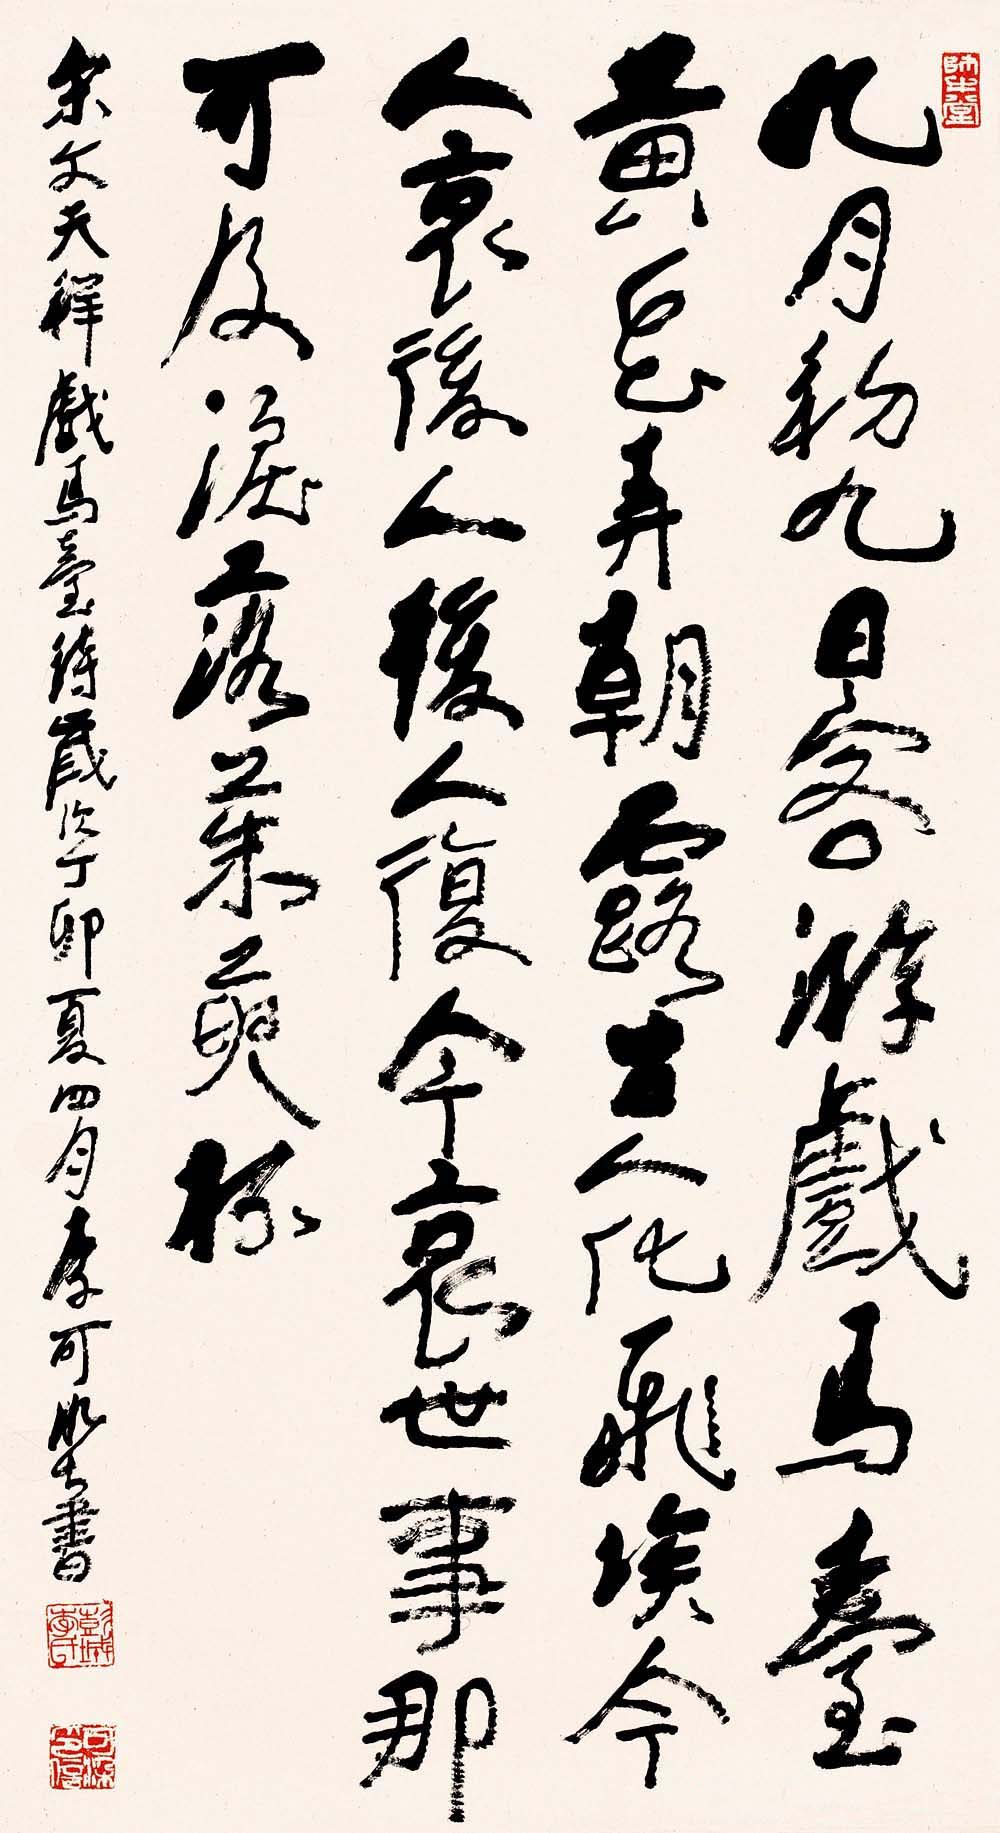 師牛堂
九月初九日客游戲馬臺
黃花弄朝露古人化飛埃今
人哀後人後人復今哀世事那
可及淚落茱萸杯
宋文天祥戲馬臺詩歲次丁卯夏四月李可染書
彭城李氏
可染印信